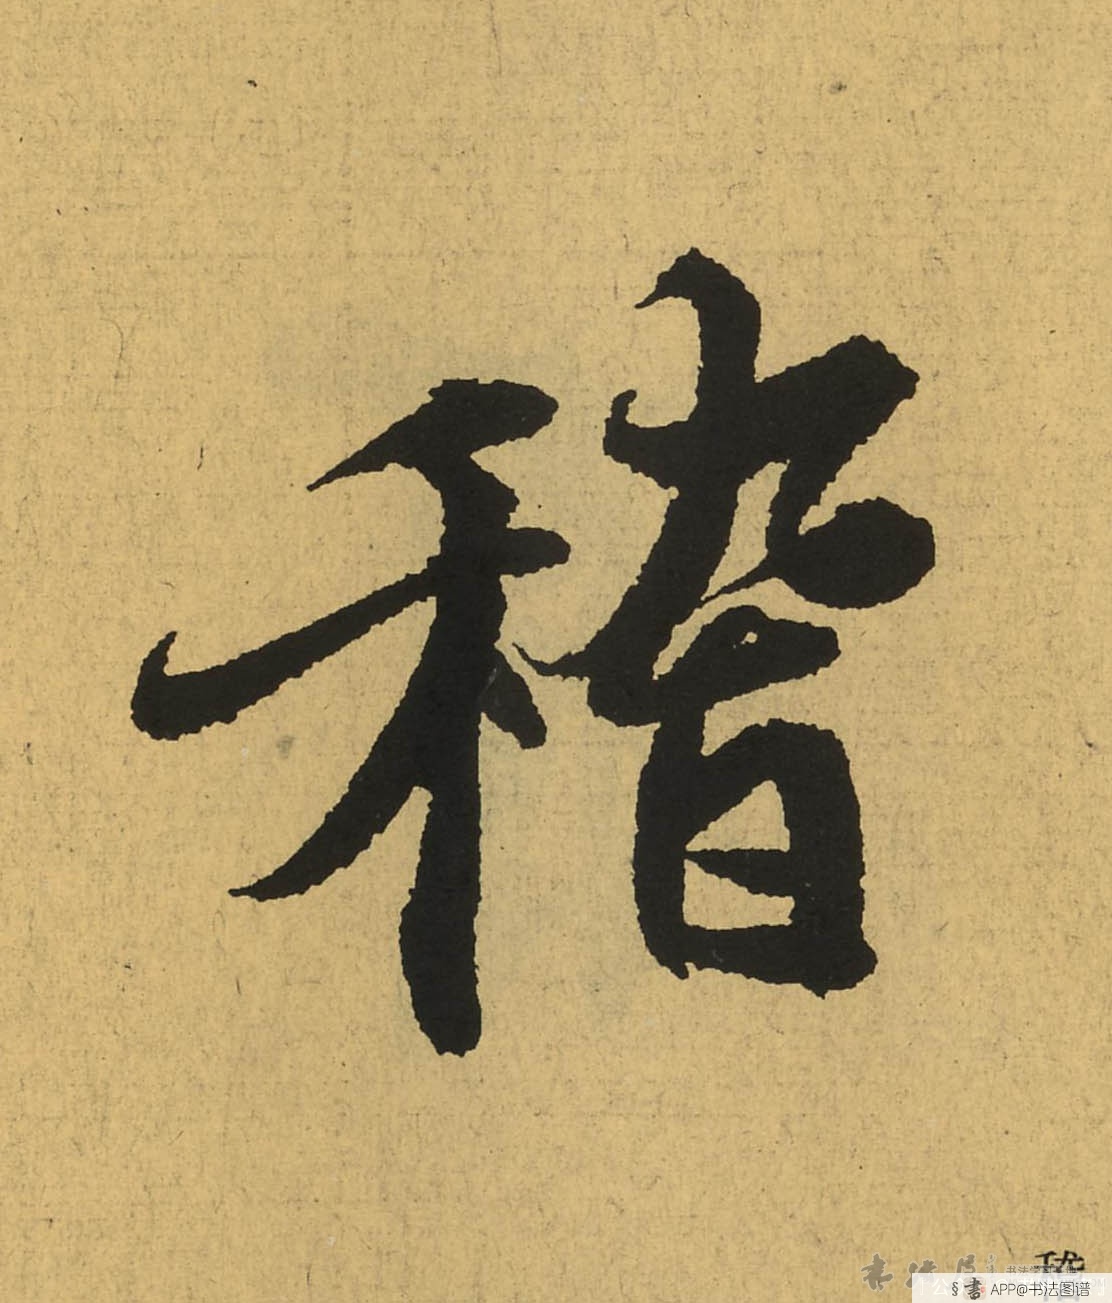 稽
§書 APP@书法图谱